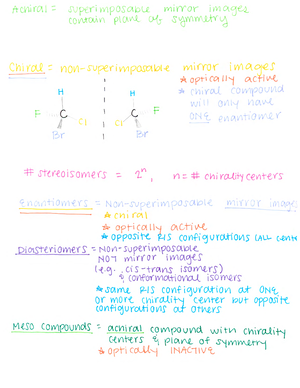 Achiral = superimposable mirror images
contain plane of symmetry
Chiral = non-superimposable mirror images
* optically active
* chiral compound
will only have
ONE enantiomer
H H
F C Cl Cl C F
Br Br
# stereoisomers = 2ⁿ, n = # chirality centers
Enantiomers = Non-superimposable mirror images
* chiral
* optically active
* opposite R/S configurations (ALL cente
Diasteriomers = Non-superimposable
NOT mirror images
(e.g. cis-trans isomers)
& conformational isomers
* same R/S configuration at ONE
or more chirality center but opposite
configurations at others
Meso compounds = achiral compound with chirality
centers & plane of symmetry
* optically INACTIVE